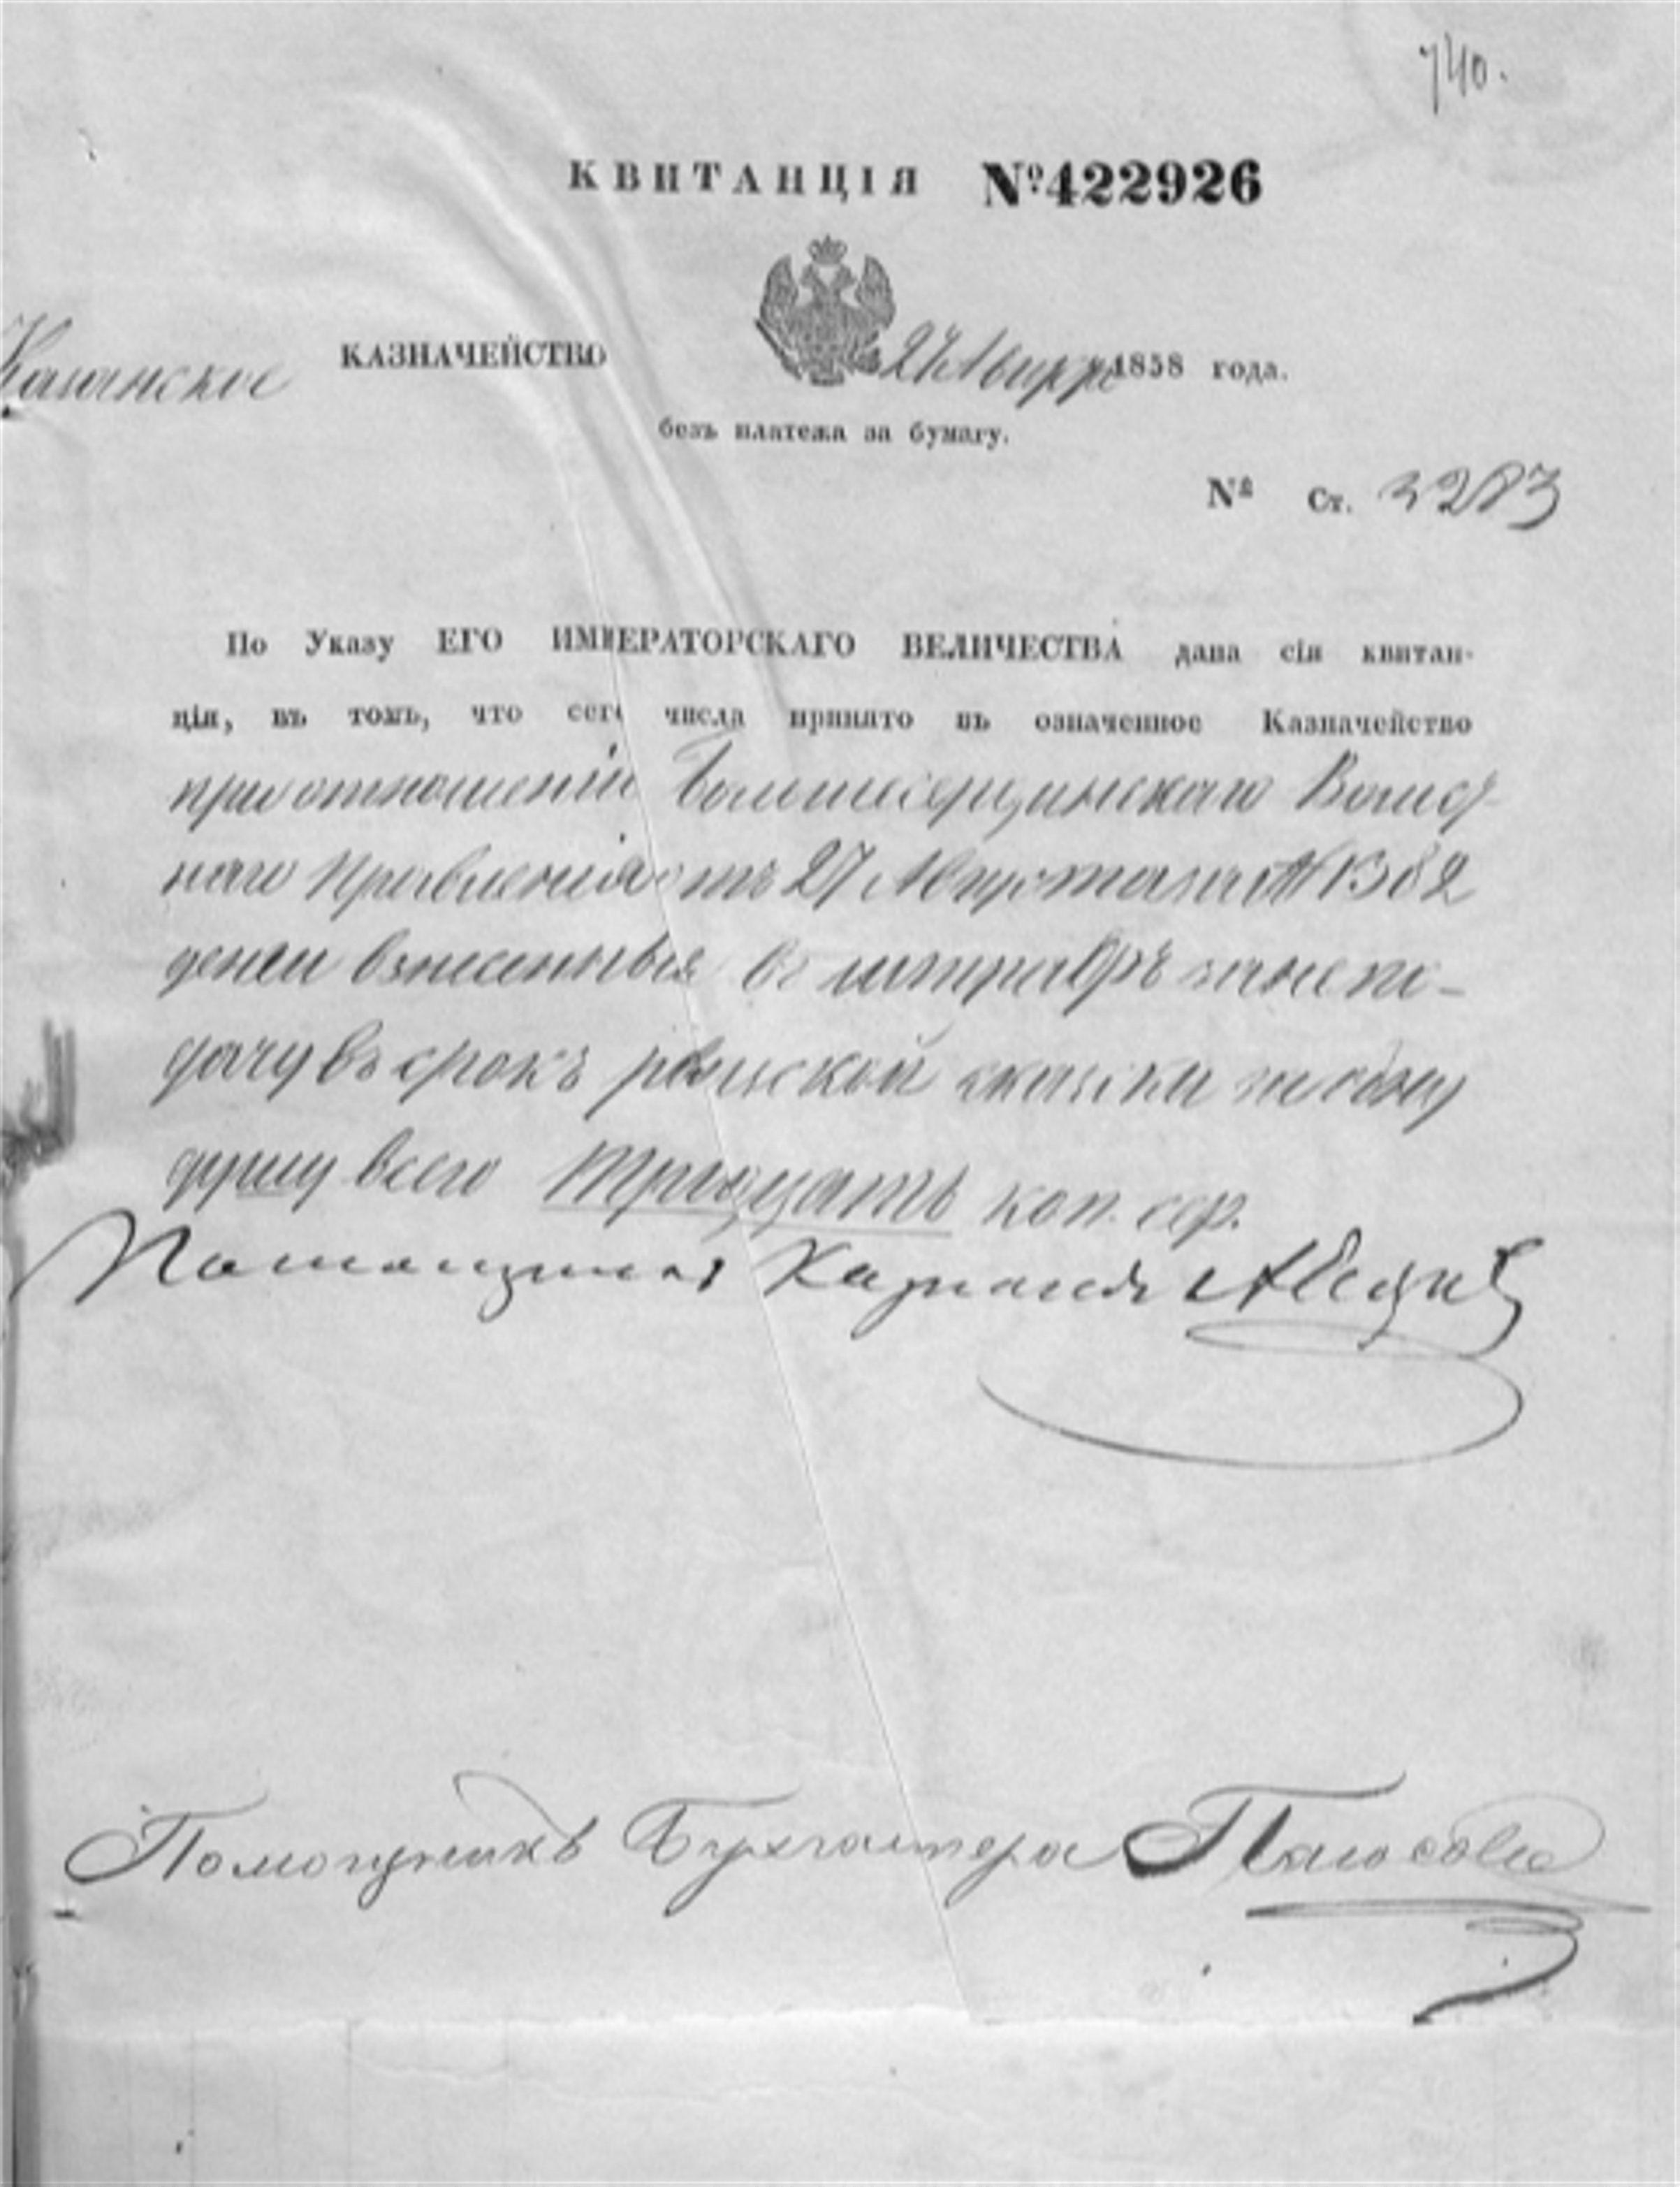 740.
КВИТАНЦІЯ №422926
Казанское КАЗНАЧЕЙСТВО 1858 года.
безъ платежа за бумагу.
№ Ст. 3283
По Указу ЕГО ИМПЕРАТОРСКАГО ВЕЛИЧЕСТВА дана сія квитан-
ція, въ томъ, что сего числа принято въ означенное Казначейство
при отношеніи Большесердинскаго Волост
наго Правленія отъ 27 Августа за № 1382
денги взнесенныя въ штрафъ за не по-
дачу въ срокъ ревиской сказки на одну
душу всего тридцать коп. сер.
Помощникъ Казначея
Помощникъ Бухгалтера